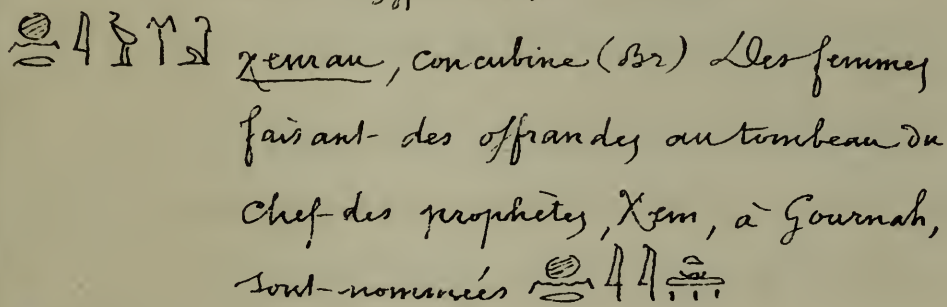 χenrau, concubine (Br) Des femmes
faisant des offrandes au tombeau du
chef des prophètes, Xem, à Gournah,
sont nommées